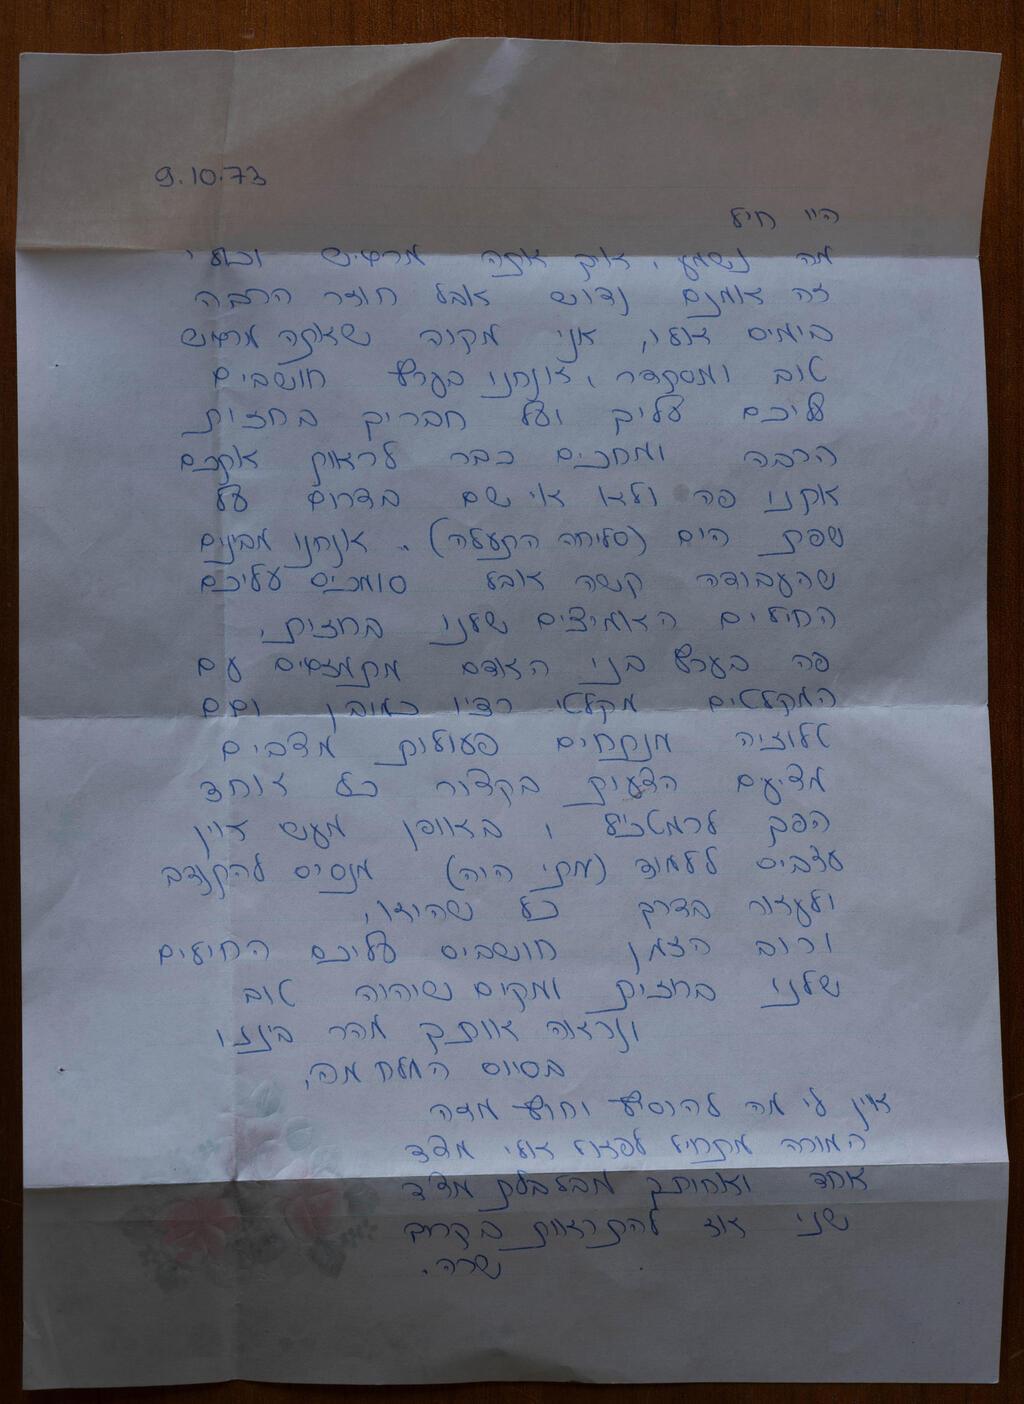 9.10.73
היי חיל
מה נשמע, איך אתה מרגיש וכולי
זה אומנם נדוש אבל חוזר הרבה
בימים אלו, אני מקוה שאתה מרגיש
טוב ומסתדר, אנחנו בעורף חושבים
עליכם עליך ועל חבריך בחזית
הרבה ומחכים כבר לראות אתכם
אתנו פה ולא אי שם בדרום על
שפת הים (סליחה התעלה).. אנחנו מבינים
שהעבודה קשה אבל סומכים עליכם
החילים האמיצים שלנו בחזית.
פה בעורף בני האדם מתמזגים עם
המקלטים מקלטי רדיו כמובן וגם
טלויזיה מנתחים פעולות מגיבים
מציעים הצעות בקצור כל אחד
הפך לרמטכ"ל, באופן מעשי אין
עצבים ללמוד (מתי היה) מנסים להתנדב
ולעזור בדרך כל שהיא,
ורוב הזמן חושבים עליכם החילים
שלנו בחזית ומקוים שיהיה טוב
ונראה אותך מהר ביננו
בסיום המלחמה,
אין לי מה להוסיף וחוץ מזה
המורה מתחיל לפזול אלי מצד
אחד ואחותך מבלבלת מצד
שני אז להתראות בקרוב
שרה.